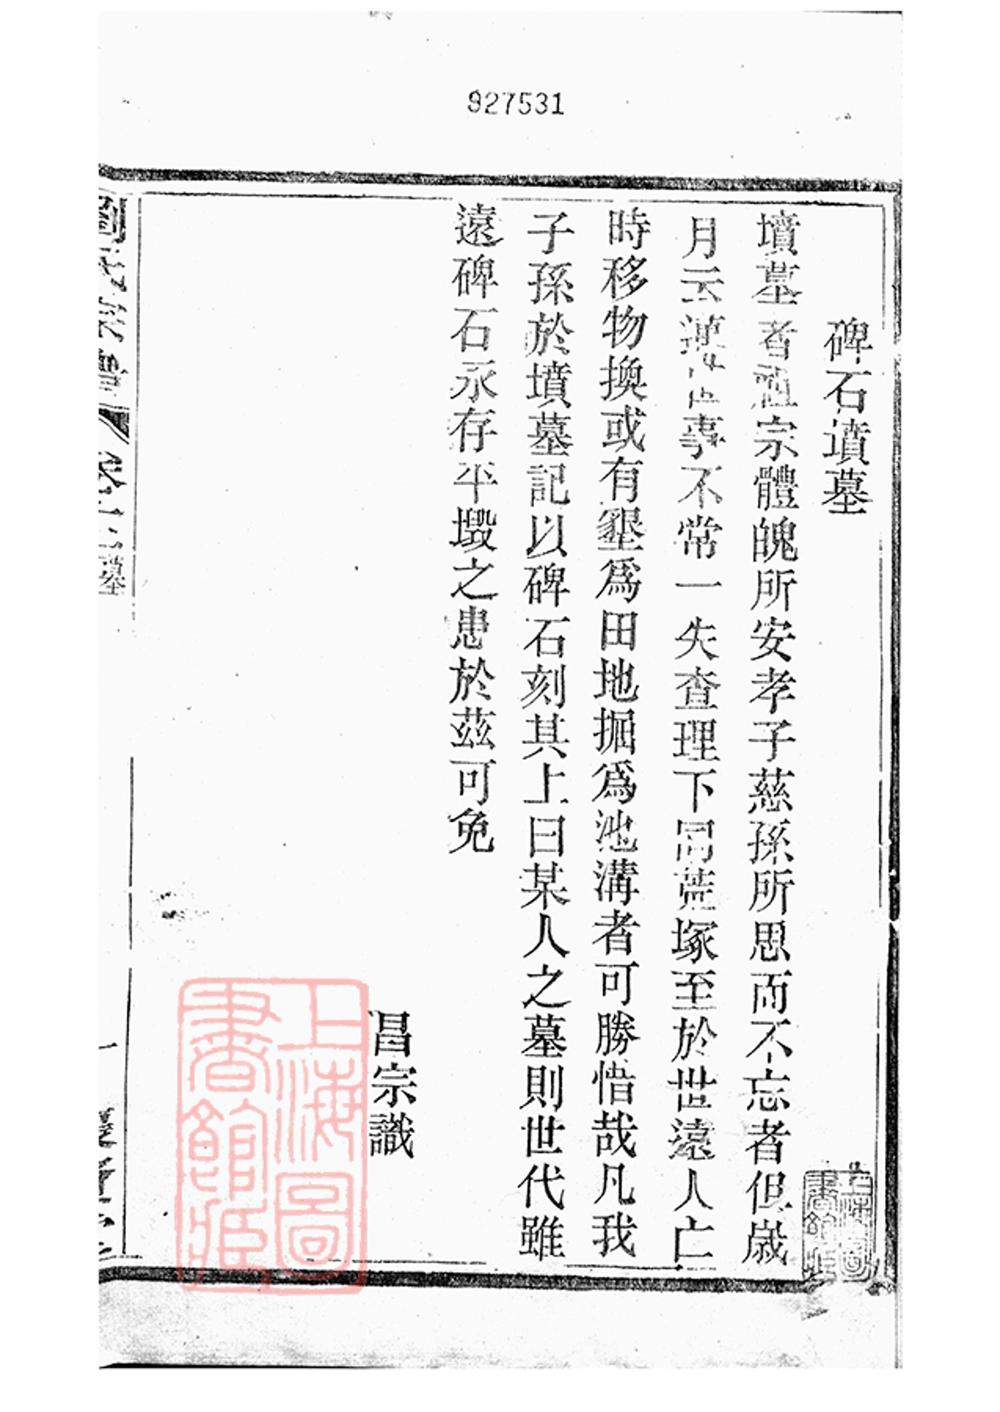 927531
碑石墳墓
墳墓者祖宗體魄所安孝子慈孫所思而不忘者但歲
月云邁世事不常一失查理下同荒塚至於世遠人亡
時移物換或有墾爲田地掘爲池溝者可勝惜哉凡我
子孫於墳墓記以碑石刻其上曰某人之墓則世代雖
遠碑石永存平毀之患於茲可免
昌宗識
劉氏宗譜
上海圖書館藏
上海圖書館藏